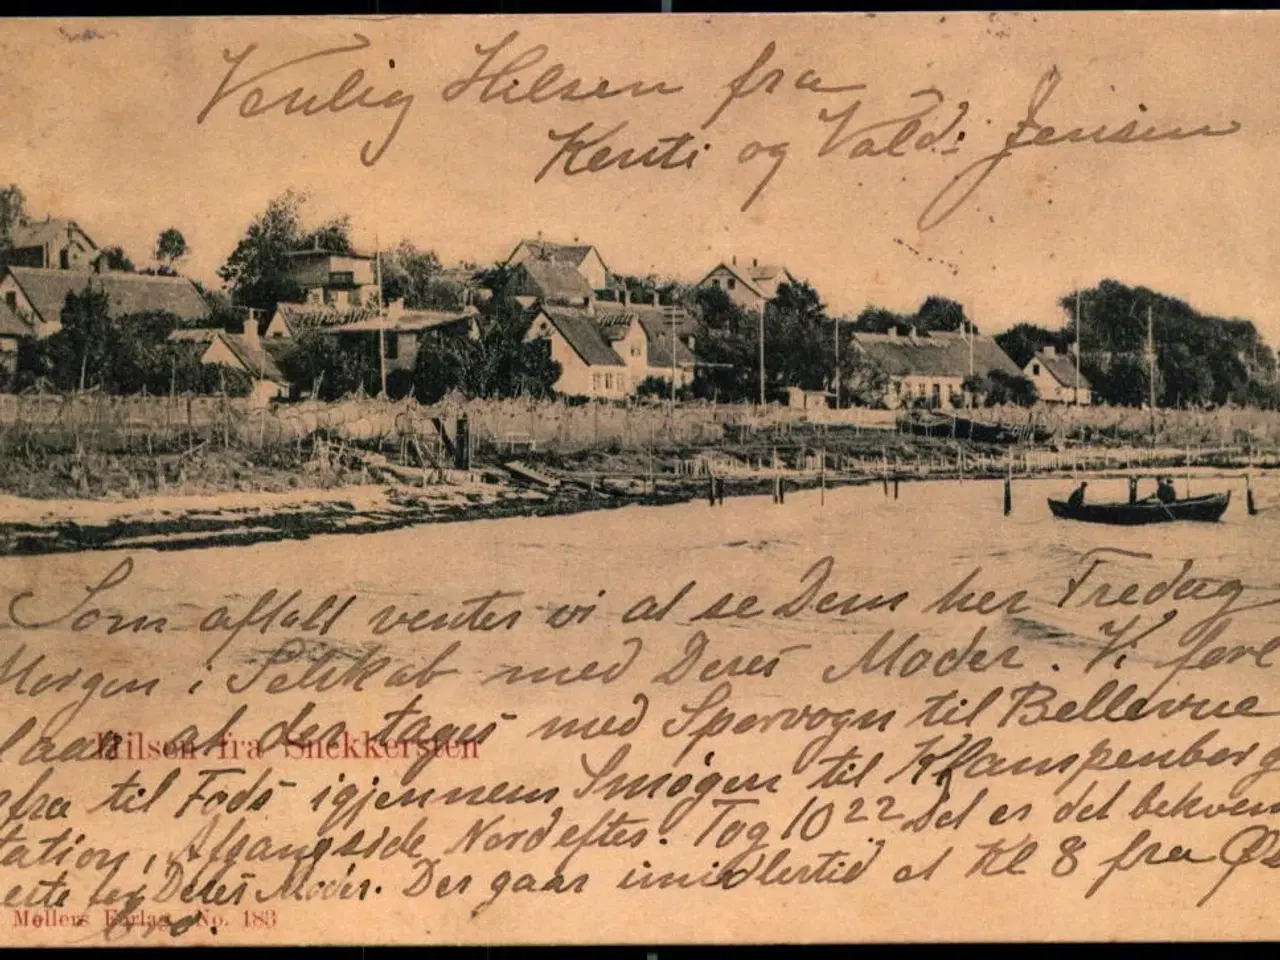 Venlig Hilsen fra
Kenti og Vald: Jensen
Som aftalt venter vi at se Dem her Fredag
Morgen i Selskab med Deres Moder. Vi fore
slaar at der tages med Sporvogn til Bellevue
Hilsen fra Snekkersten
fra til Fods igjennem Smøgen til Klampenborg
tation, Afgangside Nordefter. Tog 10 22 Det er det bekvem
este for Deres Moder. Der gaar imidlertid et Kl 8 fra Øs
Møllers Forlag. No. 183